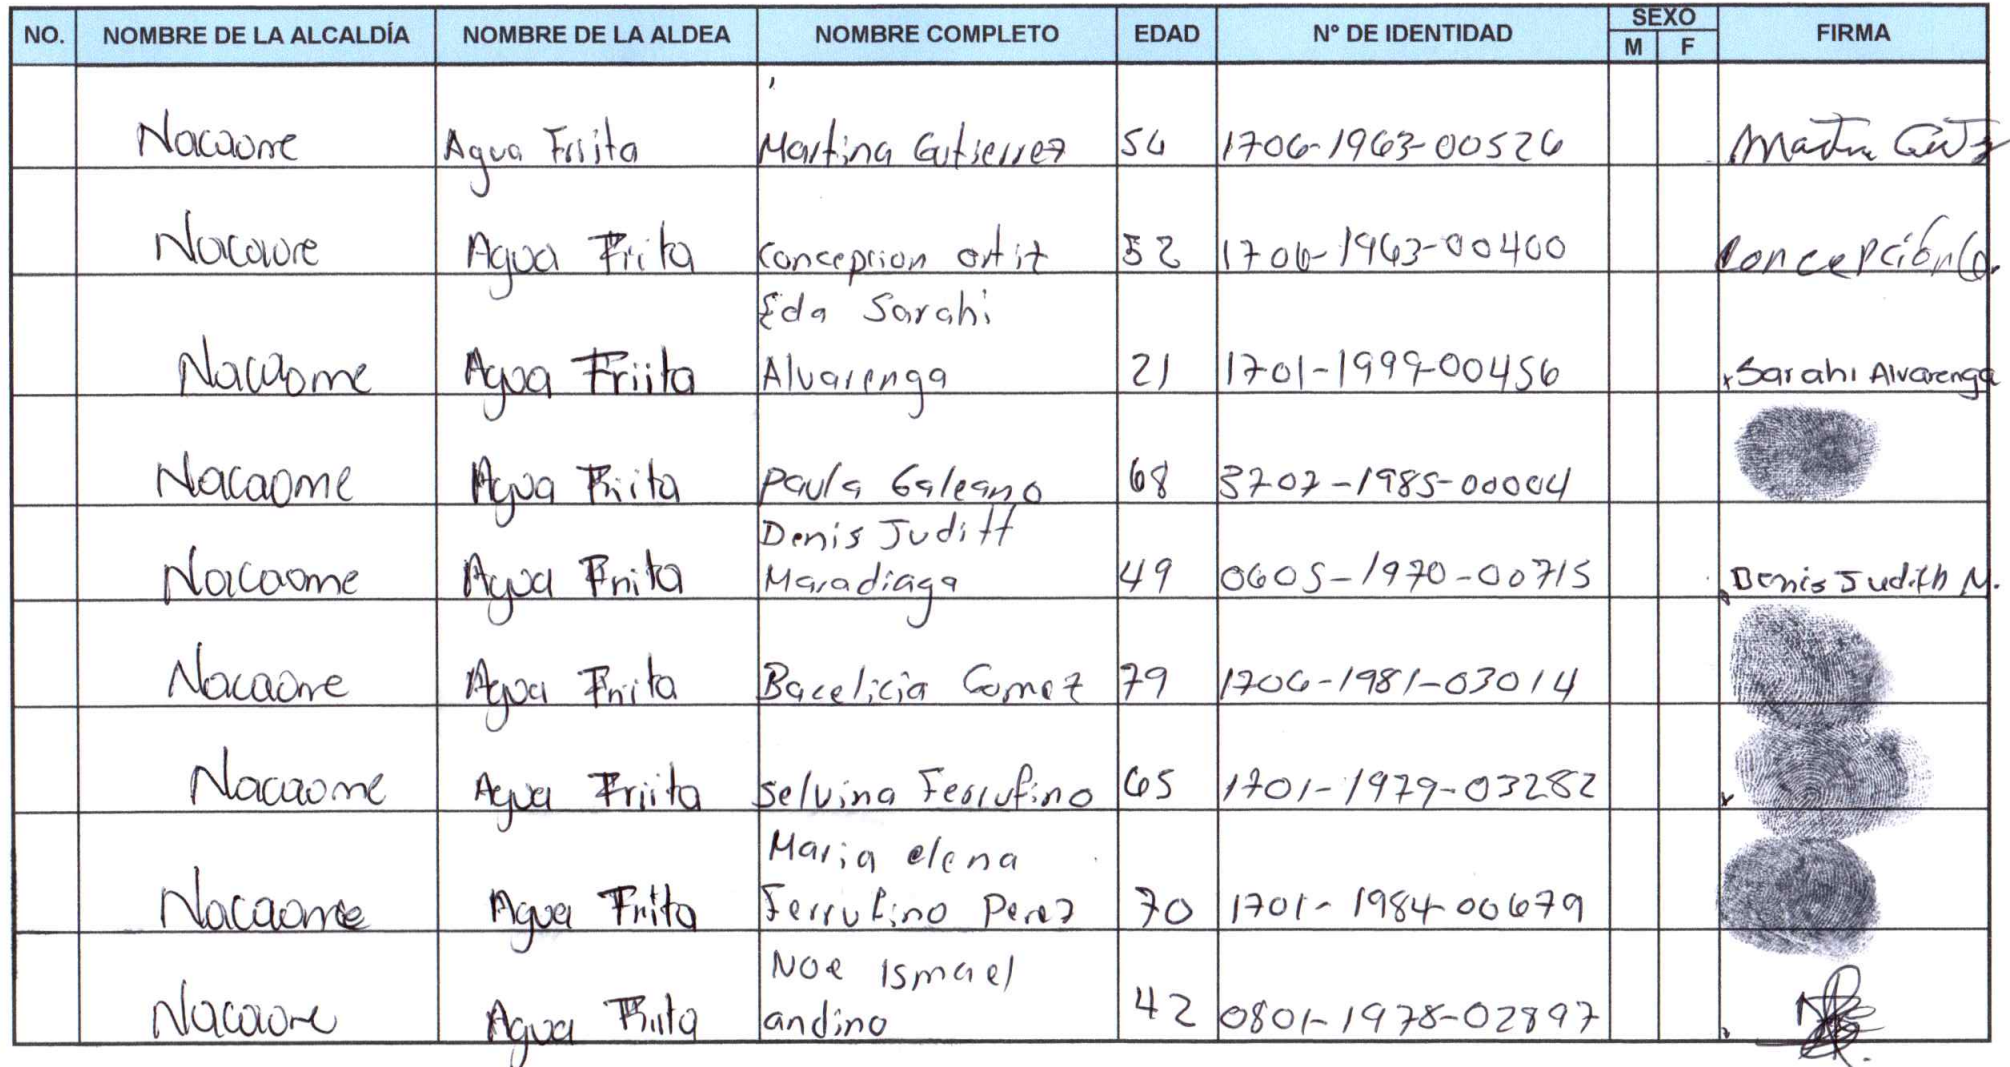 NO. NOMBRE DE LA ALCALDÍA NOMBRE DE LA ALDEA NOMBRE COMPLETO EDAD Nº DE IDENTIDAD SEXO FIRMA
M F
Nacaome Agua Friita Martina Gutierrez 56 1706-1963-00526
Nacaome Agua Friita Concepcion ortiz 52 1706-1963-00400 Concepción O.
Eda Sarahi
Nacaome Agua Friita Alvarenga 21 1701-1999-00456 Sarahi Alvarenga
Nacaome Agua Friita Paula Galeano 68 1985-00004
Denis Juditt
Nacaome Agua Friita Maradiaga 49 0605-1970-00715 Denis Judith M.
Nacaome Agua Friita Bacelicia Gomez 79 1706-1981-03014
Nacaome Agua Friita Selvina Ferrufino 65 1701-1979-03282
Maria elena
Nacaome Agua Friita Ferrufino Perez 70 1701-1984-00679
Noe Ismael
Nacaome Agua Friita andino 42 0801-1978-02897